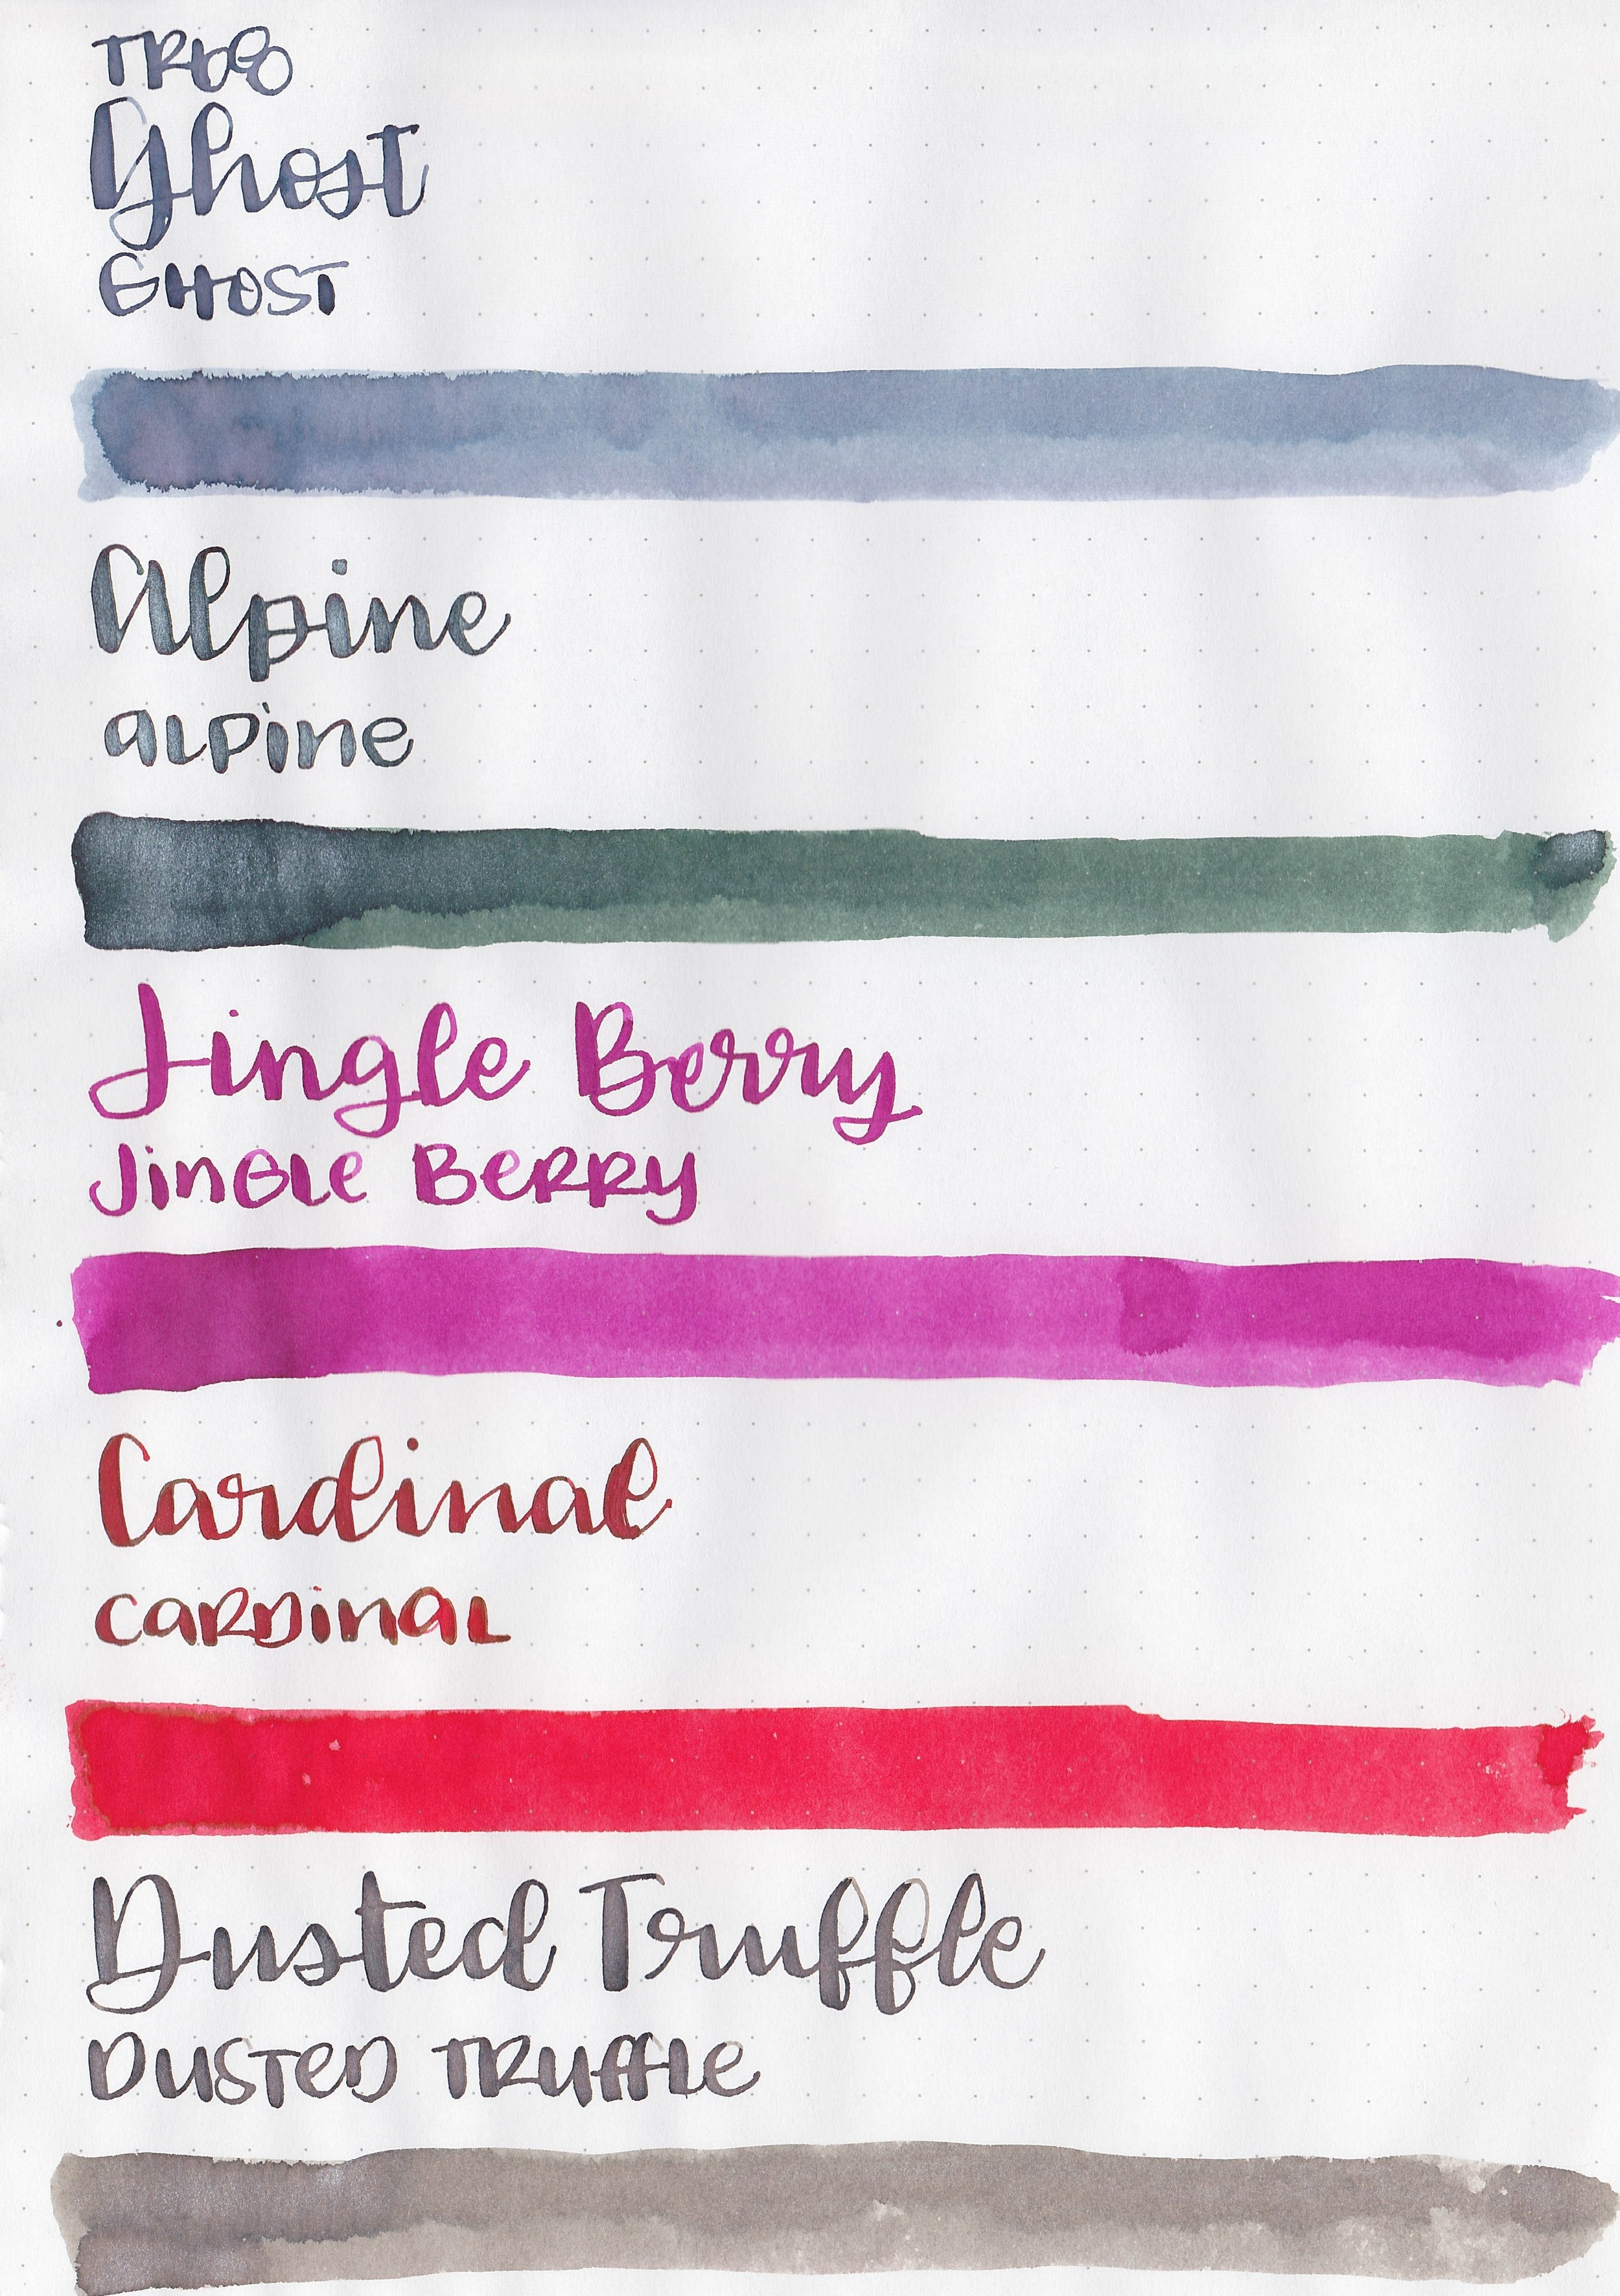 TR68
Ghost
GHOST
Alpine
alpine
Jingle Berry
JinGLe BeRRy
Cardinal
CARDinaL
Dusted Truffle
DUSTeD TRuffLe